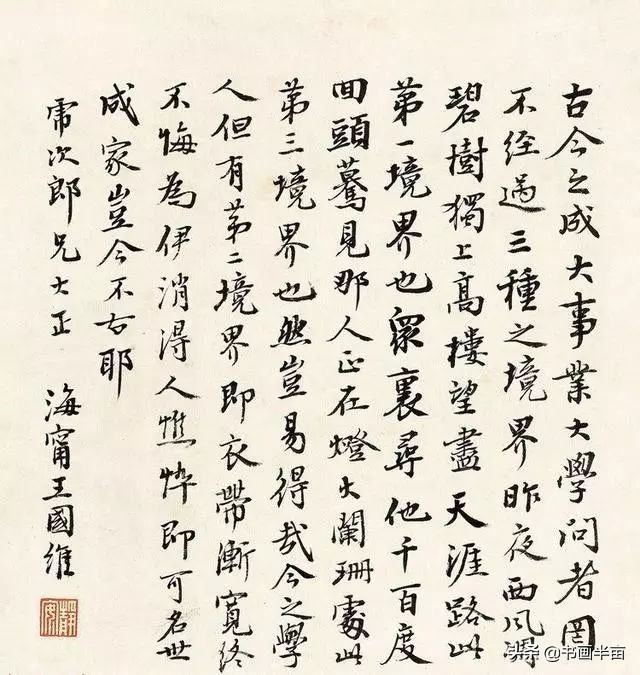 古今之成大事業大學問者罔
不经過三種之境界昨夜西风凋
碧樹獨上高樓望盡天涯路此
第一境界也衆裏尋他千百度
回頭驀見那人正在燈火闌珊處此
第三境界也然豈易得哉今之學
人但有第二境界即衣帶漸寬终
不悔為伊消得人憔悴即可名世
成家豈今不古耶
帚次郎兄大正
海甯王國維
头条@书画半亩